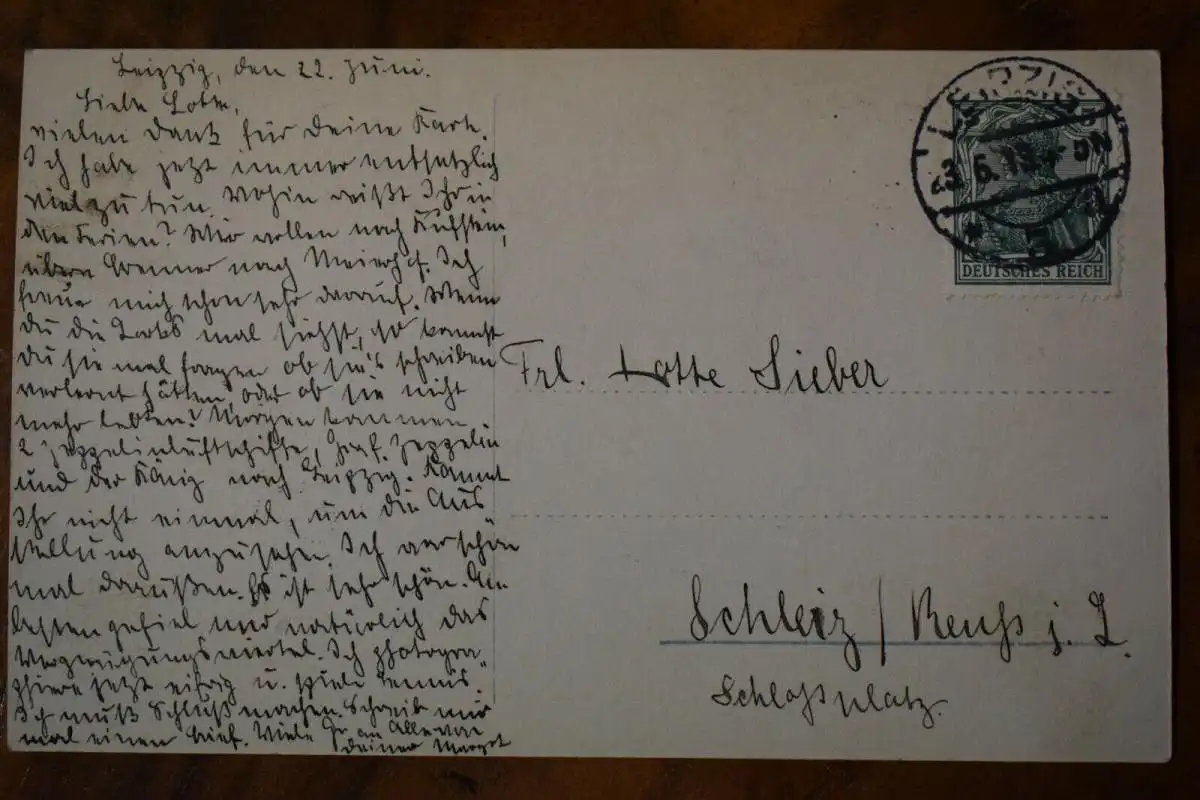 Leipzig, den 22. Juni.
Liebe Lotte,
vielen Dank für Deine Karte.
Ich habe jetzt immer entsetzlich
viel zu tun. Wohin reißt Ihr in
den Ferien? Wir wollen nach Kufstein,
übern Brenner nach Meierhof. Ich
freue mich schon sehr darauf. Wenn
Du die mal siehst, so kannst
Du sie mal fragen ob sie's schreiben
verlernt hätten oder ob sie nicht
mehr lebten? Morgen kommen
2 Zeppelinluftschiffe, Graf. Zeppelin
und der König nach Leipzig. Kommt
Ihr nicht einmal, um die Aus
stellung anzusehen. Ich war schon
mal daraußen. Es ist sehr schön. Am
besten gefiel mir natürlich das
Vergnügungsviertel. Ich photogra-
phiere jetzt eifrig u. spiele Tennis.
Ich muß Schluß machen. Schreib mir
mal einen Brief. Viele Gr. an Alle von
Deiner Margot
LEIPZIG
23.6.13.
DEUTSCHES REICH
Frl. Lotte Sieber
Schleiz / Reuß j. L.
Schloßplatz.